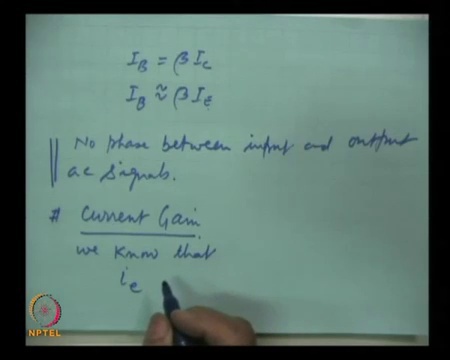 I_B = βI_C
I_B ≈ βI_E
No phase between input and output
ac signals.
# Current Gain
we know that
i_e
NPTEL